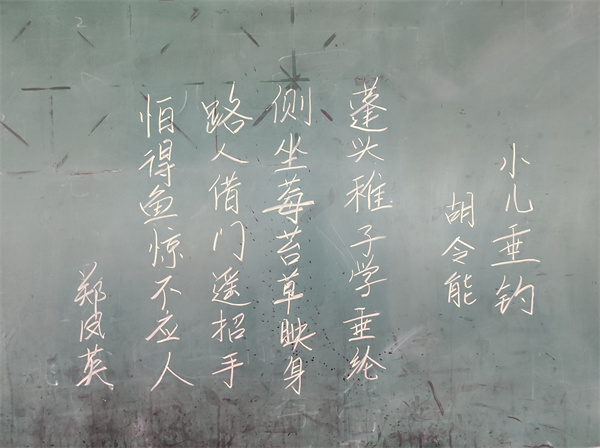 小儿垂钓
胡令能
蓬头稚子学垂纶
侧坐莓苔草映身
路人借门遥招手
怕得鱼惊不应人
郑凤英